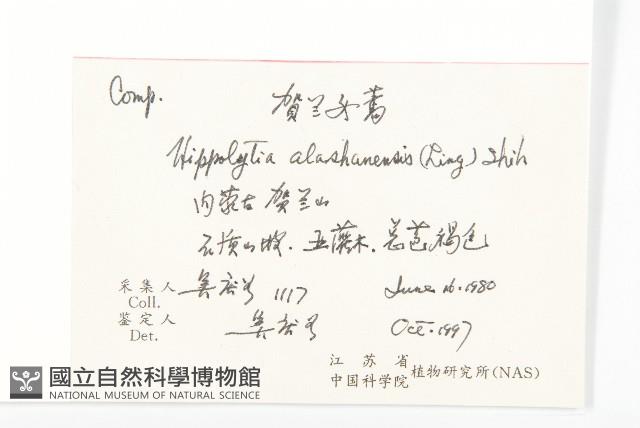 Comp.
贺兰女蒿
Hippolytia alashanensis (Ling) Shih
内蒙古 贺兰山
石质山坡. 亚灌木. 总苞褐色
采集人
Coll. 1117 June 16. 1980
鉴定人
Det. Oct. 1997
江苏省
中国科学院植物研究所(NAS)
國立自然科學博物館
NATIONAL MUSEUM OF NATURAL SCIENCE